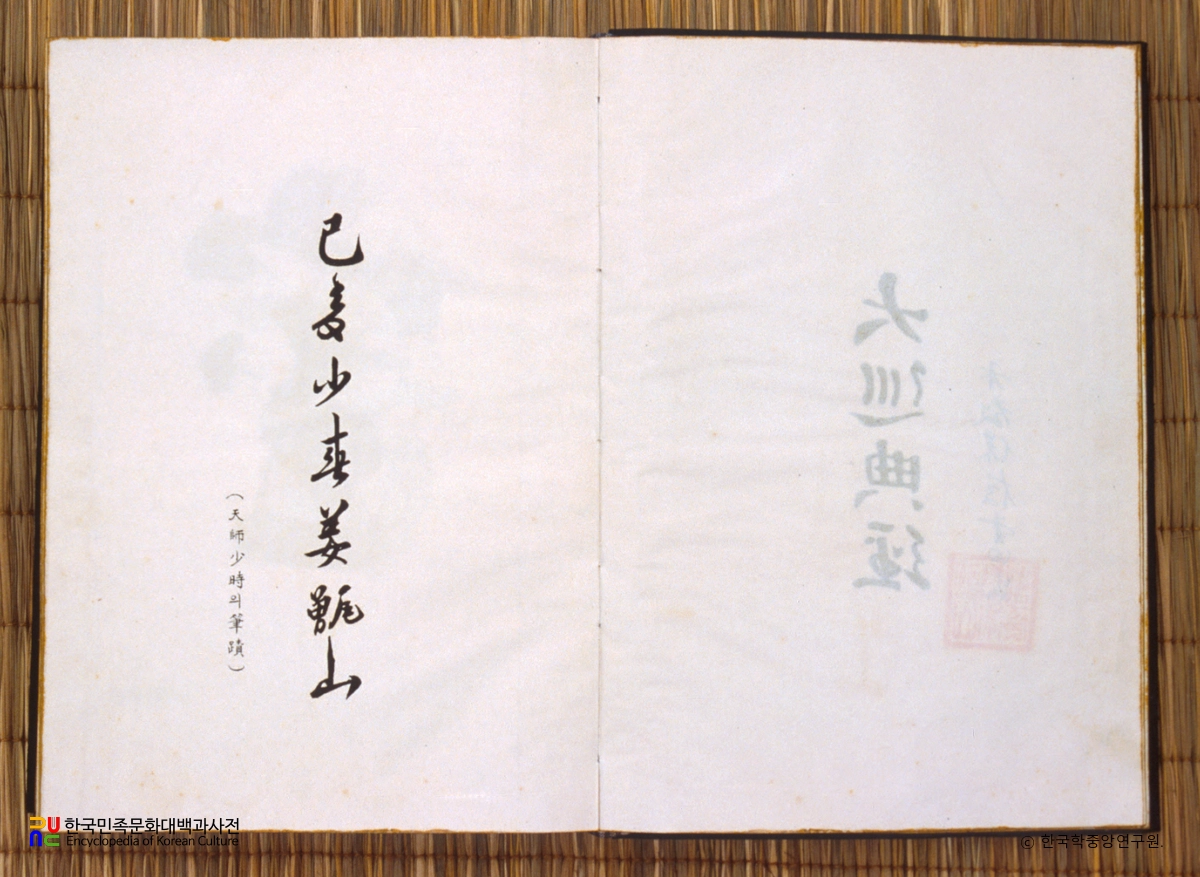 大巡典經
己亥小春姜甑山
(天師少時의筆蹟)
한국민족문화대백과사전
Encyclopedia of Korean Culture
ⓒ 한국학중앙연구원.